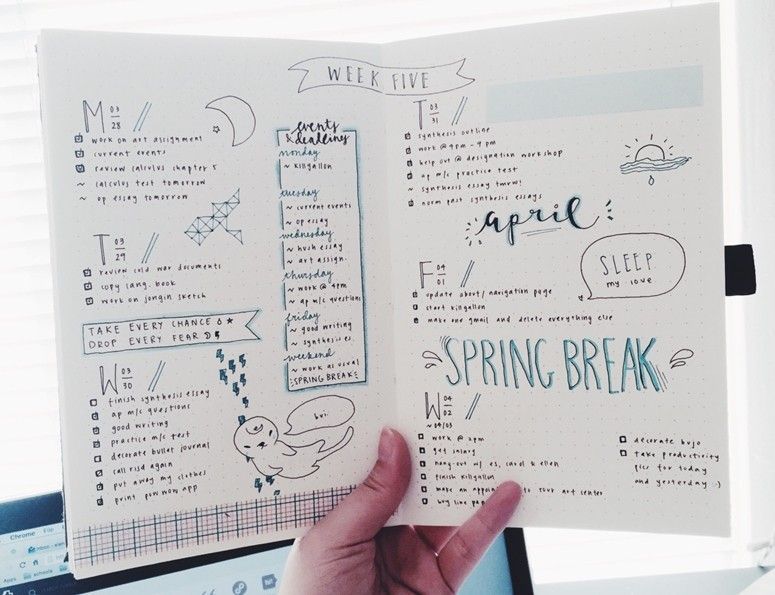 WEEK FIVE
M 03
28
work on art assignment
current events
review calculus chapter 5
~ calculus test tomorrow
~ op essay tomorrow
T 03
29
review cold war documents
copy lang. book
work on jongin sketch
TAKE EVERY CHANCE
DROP EVERY FEAR
W 03
30
finish synthesis essay
ap m/c questions
good writing
practice m/c test
decorate bullet journal
call risd again
put away my clothes
print pow wow app
events
& deadlines
monday
~ killgallon
tuesday
~ current events
~ op essay
wednesday
~ hush essay
~ art assign.
thursday
~ work @ 4pm
~ ap m/c questions
friday
~ good writing
~ synthesis es.
weekend
~ work as usual
SPRING BREAK
bui
T 03
31
synthesis outline
work @ 4pm - 9 pm
help out @ designation workshop
ap m/c practice test
~ synthesis essay tmrw!
norm past synthesis essays
april
F 04
01
update about/navigation page
start killgallon
make one gmail and delete everything else
SLEEP
my love
SPRING BREAK
W 04
02
~ 04/03
work @ 2pm
get salary
hang-out w/ es, carol & ellen
finish killgallon
make an to your art center
buy line
decorate bujo
take productivity
pics for today
and yesterday :)
Chrome File
Apps schools